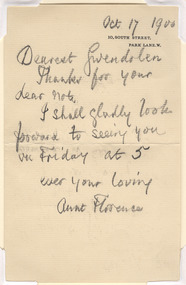 Oct 17 1900
10, SOUTH STREET,
PARK LANE, W.
Dearest Gwendolen
Thanks for your
dear note.
I shall gladly look
forward to seeing you
on Friday at 5
ever your loving
Aunt Florence